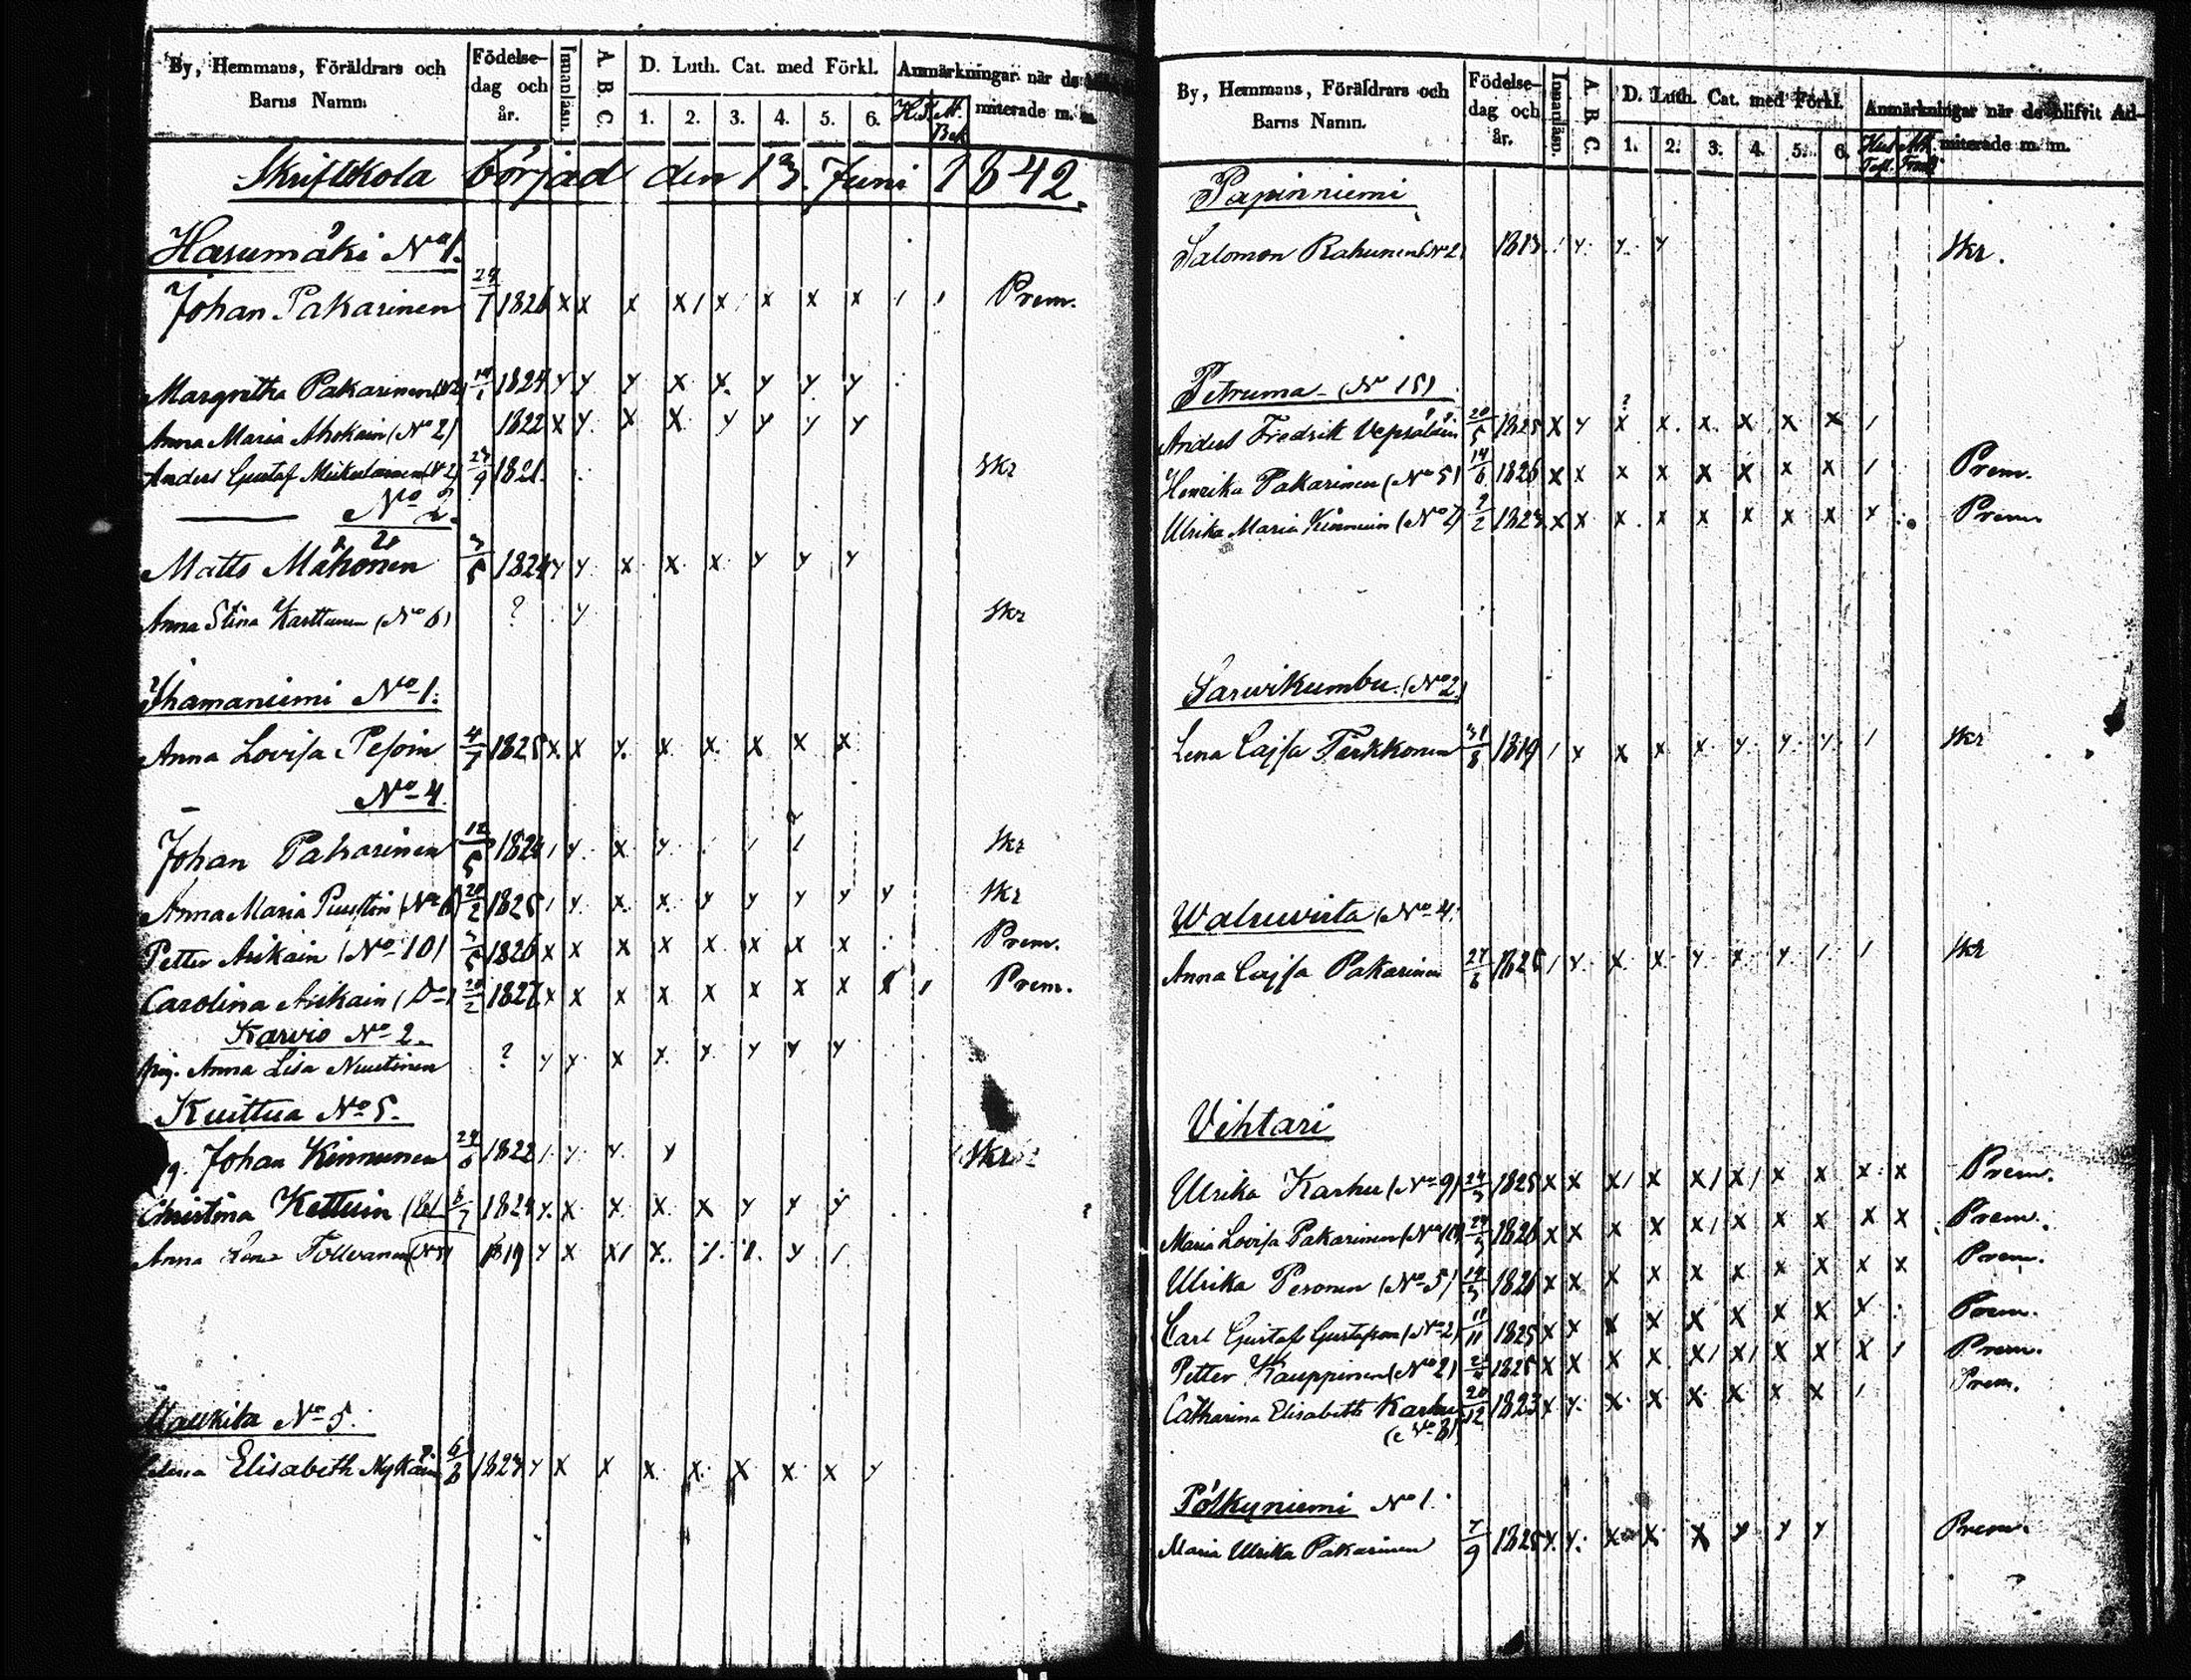 By, Hemmans, Föräldrars och Barns Namn.
Födelse-dag och år.
Innanläsn.
A B C.
D. Luth. Cat. med Förkl.
1. 2. 3. 4. 5. 6.
Anmärkningar när de
miterade m. m.
Skriftskola börjad den 13. Juni 1842.
Harumäki No 1.
Johan Pakarinen 1826 x x x x/ x/ x x x / / Prem.
Margretha Pakarinen (N2) 1824 y y y x x. y y y
Anna Maria Ahokain (No 2) 1822 x y. x x y y y y
Anders Gustaf (N 2) 9 1821. Skr
No 2.
Matts Mähönen 3/5 1824 y y x x x y y y
Anna Stina Karttunen (No 6) ? y Skr
Ihamaniemi No 1.
Anna Lovisa Pesoin 4/7 1825 x. x x. x x. x x x
No 4.
Johan Pakarinen 12/5 1824 / y. x y. / / Skr
Anna Maria 20/2 1825 / y. x. x. y y y y y Skr
Petter Asikain (No 10) 3/5 1826 x x x x x. x x x Prem.
Carolina Asikain (Do) 20/2 1827 x x x x x x x x x / Prem.
Karvio No 2.
Pig. Anna Lisa Nuutinen ? y y. x x. y. y y y
Kuittua No 5.
Johan Kinnunen 1822 / y. y. y Skr
Christina Kettuin 1824 y. x x. x. x y y y
Anna Tolvanen 1819 y x x/ x. y /
No 5.
Elisabeth Nykäin 6/8 1823 y x x x. x. x x x y
By, Hemmans, Föräldrars och Barns Namn.
Födelse-dag och år.
Innanläsn.
A B C.
D. Luth. Cat. med Förkl.
1. 2. 3. 4. 5. 6.
Anmärkningar när de blifvit Ad-
miterade m. m.
Papinniemi
Salomon Rahunen (N2) 1813. / y. y. y Skr.
Petruma (No 15)
Anders Fredrik Vepsäläin 20/5 1825 x y x x. x. x x x /
Henrika Pakarinen (No 5) 14/6 1826 x x x x x x x x / Prem.
Ulrika Maria (No 7) 1823. x x x x x x x x x Prem
Sarvikumbu (No 2)
Lena Cajsa Parkkonen 31/8 1819 / x x x x. y. y. y. / Skr
Walsuvirta (No 4.
Anna Cajsa Pakarinen 27/6 1825 / y. x. x. y x. y / / Skr
Vihtari
Ulrika Karhu (No 9) 1825 x x x/ x x/ x/ x x x x Prem.
Maria Lovisa Pakarinen 1826 x x x x x/ x x x x x Prem.
Ulrika Pesonen (No 5) 1826 x x x x x x x x x x Prem.
Carl Gustaf Gustafson (No 2) 1825 x x x x x x x x x Prem.
Petter Kauppinen (No 2) 1825 x x x x. x/ x/ x x x / Prem.
Catharina Elisabeth Karhu 20/12 1823 x y. x. x x. x x x / Prem.
(No 8)
Pölkyniemi No 1.
Maria Ulrika Pakarinen 7/9 1825 y. y. x x x y y y Prem.